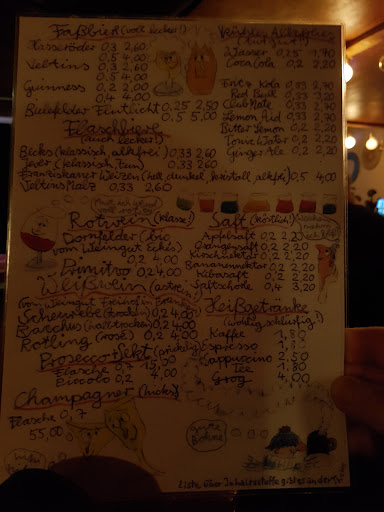 Faßbier (voll lecker!)
Hasseröder 0,3 2,60
0,5 4,00
Veltins 0,3 2,60
0,5 4,00
Guinness 0,2 2,00
0,4 4,00
Bielefelder Flintlicht 0,25 2,50
0,5 5,00
Flaschbiere
(auch lecker!)
Becks (klassisch, alkfrei) 0,33 2,60
Jever (klassisch, Fun) 0,33 2,60
Franziskaner Weizen (hell, dunkel, kristall, alkfrei) 0,5 4,00
Veltins Malz 0,33 2,60
Rotwein (klasse!)
Dornfelder (bio
vom Weingut
0,2 4,00
Primitivo 0,2 4,00
Weißwein (astrein!)
(vom Weingut
Scheurebe 0,2 4,00
Bacchus (halbtrocken) 0,2 4,00
Rotling (rosé) 0,2 4,00
Prosecco/Sekt (prickelnd)
Flasche 0,7
Piccolo 0,2 4,00
Champagner (hicks)
Flasche 0,7
55,00
Wasser 0,25 1,70
Coca Cola 0,2 2,20
Fritz Kola 0,33 2,70
Red Bull 0,33
Club Mate 0,33 2,70
Lemon Aid 0,33 2,70
Bitter Lemon 0,2 2,20
Tonic Water 0,2 2,20
Ginger Ale 0,2 2,20
Saft (köstlich!)
Apfelsaft 0,2 2,20
Orangensaft 0,2 2,20
Kirschnektar 0,2 2,20
Bananennektar 0,2 2,20
Kibasaft 0,2 2,20
Saftschorle 0,4 3,20
Heißgetränke
(wohlig schlürfig!)
Kaffee
Espresso
Cappuccino 2,50
Tee 1,80
Grog 4,00
gute
Bohne
Liste über Inhaltsstoffe gibt es an der